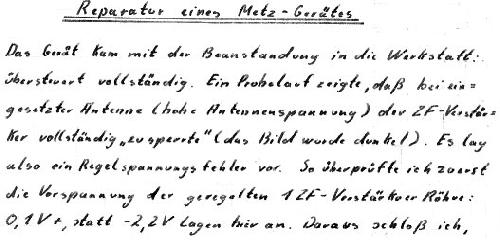 Reparatur eines Metz-Gerätes
Das Gerät kam mit der Beanstandung in die Werkstatt:
übersteuert vollständig. Ein Probelauf zeigte, daß bei ein=
gesetzter Antenne (hohe Antennenspannung) der ZF-Verstär=
ker vollständig „zusperrte" (das Bild wurde dunkel). Es lag
also ein Regelspannungsfehler vor. So überprüfte ich zuerst
die Vorspannung der geregelten 1 ZF-Verstärker Röhre:
0,1V+, statt -2,2V lagen hier an. Daraus schloß ich,